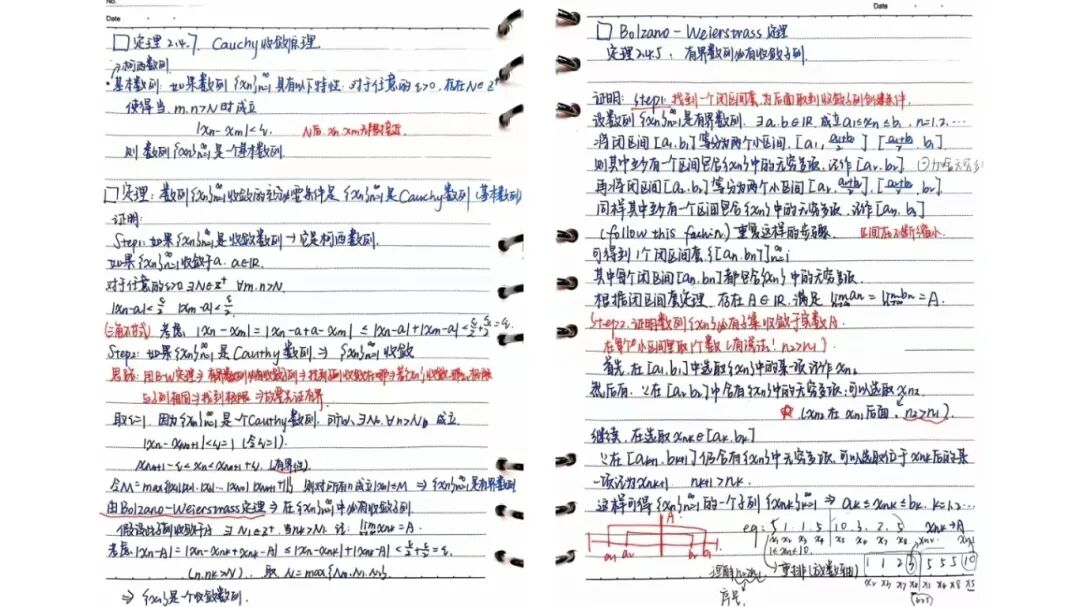 No.
Date
□ 定理2.4.7. Cauchy收敛原理.
柯西数列
·基本数列: 如果数列{xn}∞n=1具有以下特性: 对于任意的ε>0, 存在N∈Z+
使得当 m.n>N时成立
|xn-xm|<ε.
则 数列{xn}∞n=1是一个基本数列.
□ 定理: 数列{xn}∞n=1收敛的充分必要条件是{xn}∞n=1是Cauchy数列(基本数列)
证明:
Step1: 如果{xn}∞n=1是收敛数列→它是柯西数列.
如果{xn}∞n=1收敛于a. a∈R.
对于任意的ε>0 ∃N∈Z+ ∀m.n>N.
|xn-a|<ε/2 |xm-a|<ε/2.
(三角不等式) 考虑: |xn-xm|=|xn-a+a-xm|≤|xn-a|+|xm-a|<ε/2+ε/2=ε.
Step2: 如果{xn}∞n=1是Cauthy数列⇒{xn}∞n=1收敛
思路: 用B-W定理⇒有界数列必有收敛子列⇒
与子列相同⇒找到极限⇒故需先证有界.
取ε=1. 因为{xn}∞n=1是一个Cauthy数列. 所以∃N0 ∀n>N0 成立
|xn-xN0+1|<ε=1 (令ε=1).
xN0+1-ε<xn<xN0+1+ε. (有界性).
由Bolzano-Weierstrass定理⇒在{xn}∞n=1中必有收敛子列
假设的子列收敛于A ∃N1∈Z+. 当nk>N1
考虑: |xn-A|=|xn-xnk+xnk-A|≤|xn-xnk|+|xnk-A|<ε/2+ε/2=ε.
(n,nk>N). 取 N=max{N0.N1}
⇒{xn}是一个收敛数列.
Date
□ Bolzano-Weierstrass定理
定理2.4.5. 有界数列必有收敛子列.
证明: Step1: 找到一个闭区间套, 为后面取到收敛子列创建条件.
设数列{xn}∞n=1是有界数列. ∃a1.b1∈R. 成立a1≤xn≤b1. n=1.2.…
将闭区间[a1.b1]等分为两个小区间[a1, a1+b1/2] [a1+b1/2, b1]
则其中至少有一个区间包含{xn}中的无穷多项, 记作[a2.b2].
再将闭区间[a2.b2]等分为两个小区间[a2, a2+b2/2], [a2+b2/2, b2]
同样其中至少有一个区间包含{xn}中的无穷多项. 记作[a3.b3]
(follow this fashion.) 重复这样的步骤. 区间在不断缩小.
可得到1个闭区间套{[an.bn]}∞n=1
其中每个闭区间[an.bn]都包含{xn}中的无穷多项.
根据闭区间套定理. 存在A∈R. 满足 liman=limbn=A.
Step2. 证明数列{xn}必有子集收敛于实数A.
在每个小区间里取1个数(有误法! n2>n1)
首先. 在[a1.b1]中选取{xn}中的某项记作xn1
然后有. ∵在[a2.b2]中含有{xn}中的无穷多项: 可以选取xn2
(xn2在xn1后面. n2>n1).
继续. 在选取xnk∈[ak.bk]
∵在[ak+1.bk+1]仍含有{xn}中无穷多项. 可以选取位于xnk后的某
一项记为xnk+1 nk+1>nk.
这样可得{xn}∞n=1的一个子列{xnk}∞k=1 ⇒ ak≤xnk≤bk. k=1.2…
A
eg: 5 1. 1. 5 10. 3. 2. 5 xnk→A
x1 x2 x3 x4 x5 x6 x7 x8
1≤xn≤10.
1 1 2 3 5 5 5 10
序号